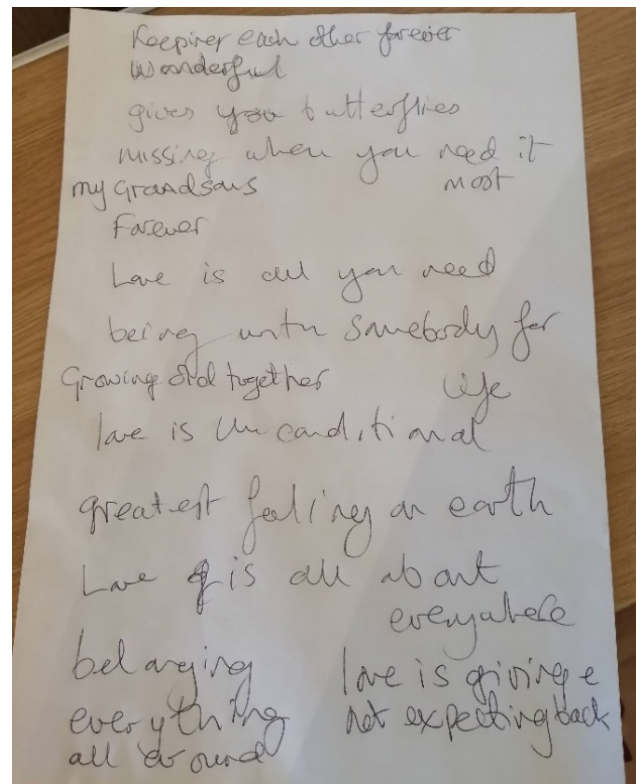 Keepiner each other forever
Wonderful
gives you butterflies
missing when you need it
most
my Grandsons
Forever
Love is all you need
being with somebody for
life
Growing old together
love is Unconditional
greatest feeling on earth
Love is all about
everywhere
belonging
love is giving e
not expecting back
everything
all around